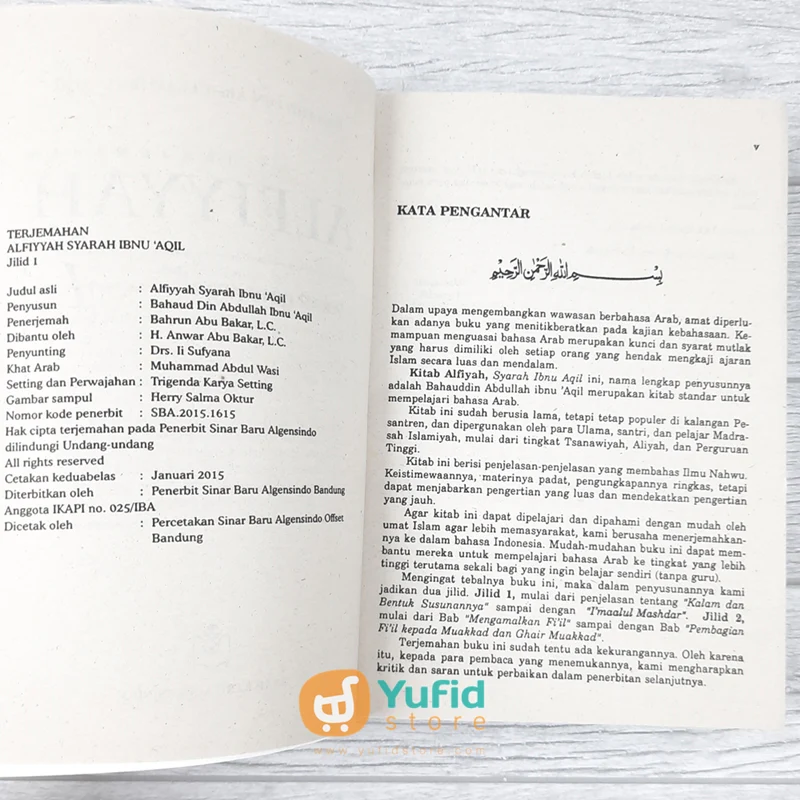 TERJEMAHAN
ALFIYYAH SYARAH IBNU 'AQIL
Jilid 1
Judul asli : Alfiyyah Syarah Ibnu 'Aqil
Penyusun : Bahaud Din Abdullah Ibnu 'Aqil
Penerjemah : Bahrun Abu Bakar, L.C.
Dibantu oleh : H. Anwar Abu Bakar, L.C.
Penyunting : Drs. Ii Sufyana
Khat Arab : Muhammad Abdul Wasi
Setting dan Perwajahan : Trigenda Karya Setting
Gambar sampul : Herry Salma Oktur
Nomor kode penerbit : SBA.2015.1615
Hak cipta terjemahan pada Penerbit Sinar Baru Algensindo
dilindungi Undang-undang
All rights reserved
Cetakan keduabelas : Januari 2015
Diterbitkan oleh : Penerbit Sinar Baru Algensindo Bandung
Anggota IKAPI no. 025/IBA
Dicetak oleh : Percetakan Sinar Baru Algensindo Offset
Bandung
v
KATA PENGANTAR
بسم الله الرحمن الرحيم
Dalam upaya mengembangkan wawasan berbahasa Arab, amat diperlu-
kan adanya buku yang menitikberatkan pada kajian kebahasaan. Ke-
mampuan menguasai bahasa Arab merupakan kunci dan syarat mutlak
yang harus dimiliki oleh setiap orang yang hendak mengkaji ajaran
Islam secara luas dan mendalam.
Kitab Alfiyah, Syarah Ibnu Aqil ini, nama lengkap penyusunnya
adalah Bahauddin Abdullah ibnu 'Aqil merupakan kitab standar untuk
mempelajari bahasa Arab.
Kitab ini sudah berusia lama, tetapi tetap populer di kalangan Pe-
santren, dan dipergunakan oleh para Ulama, santri, dan pelajar Madra-
sah Islamiyah, mulai dari tingkat Tsanawiyah, Aliyah, dan Perguruan
Tinggi.
Kitab ini berisi penjelasan-penjelasan yang membahas Ilmu Nahwu.
Keistimewaannya, materinya padat, pengungkapannya ringkas, tetapi
dapat menjabarkan pengertian yang luas dan mendekatkan pengertian
yang jauh.
Agar kitab ini dapat dipelajari dan dipahami dengan mudah oleh
umat Islam agar lebih memasyarakat, kami berusaha menerjemahkan-
nya ke dalam bahasa Indonesia. Mudah-mudahan buku ini dapat mem-
bantu mereka untuk mempelajari bahasa Arab ke tingkat yang lebih
tinggi terutama sekali bagi yang ingin belajar sendiri (tanpa guru).
Mengingat tebalnya buku ini, maka dalam penyusunannya kami
jadikan dua jilid. Jilid 1, mulai dari penjelasan tentang "Kalam dan
Bentuk Susunannya" sampai dengan "I'maalul Mashdar". Jilid 2,
mulai dari Bab "Mengamalkan Fi'il" sampai dengan Bab "Pembagian
Fi'il kepada Muakkad dan Ghair Muakkad".
Terjemahan buku ini sudah tentu ada kekurangannya. Oleh karena
itu, kepada para pembaca yang menemukannya, kami mengharapkan
kritik dan saran untuk perbaikan dalam penerbitan selanjutnya.
Yufid
store
www.yufidstore.com